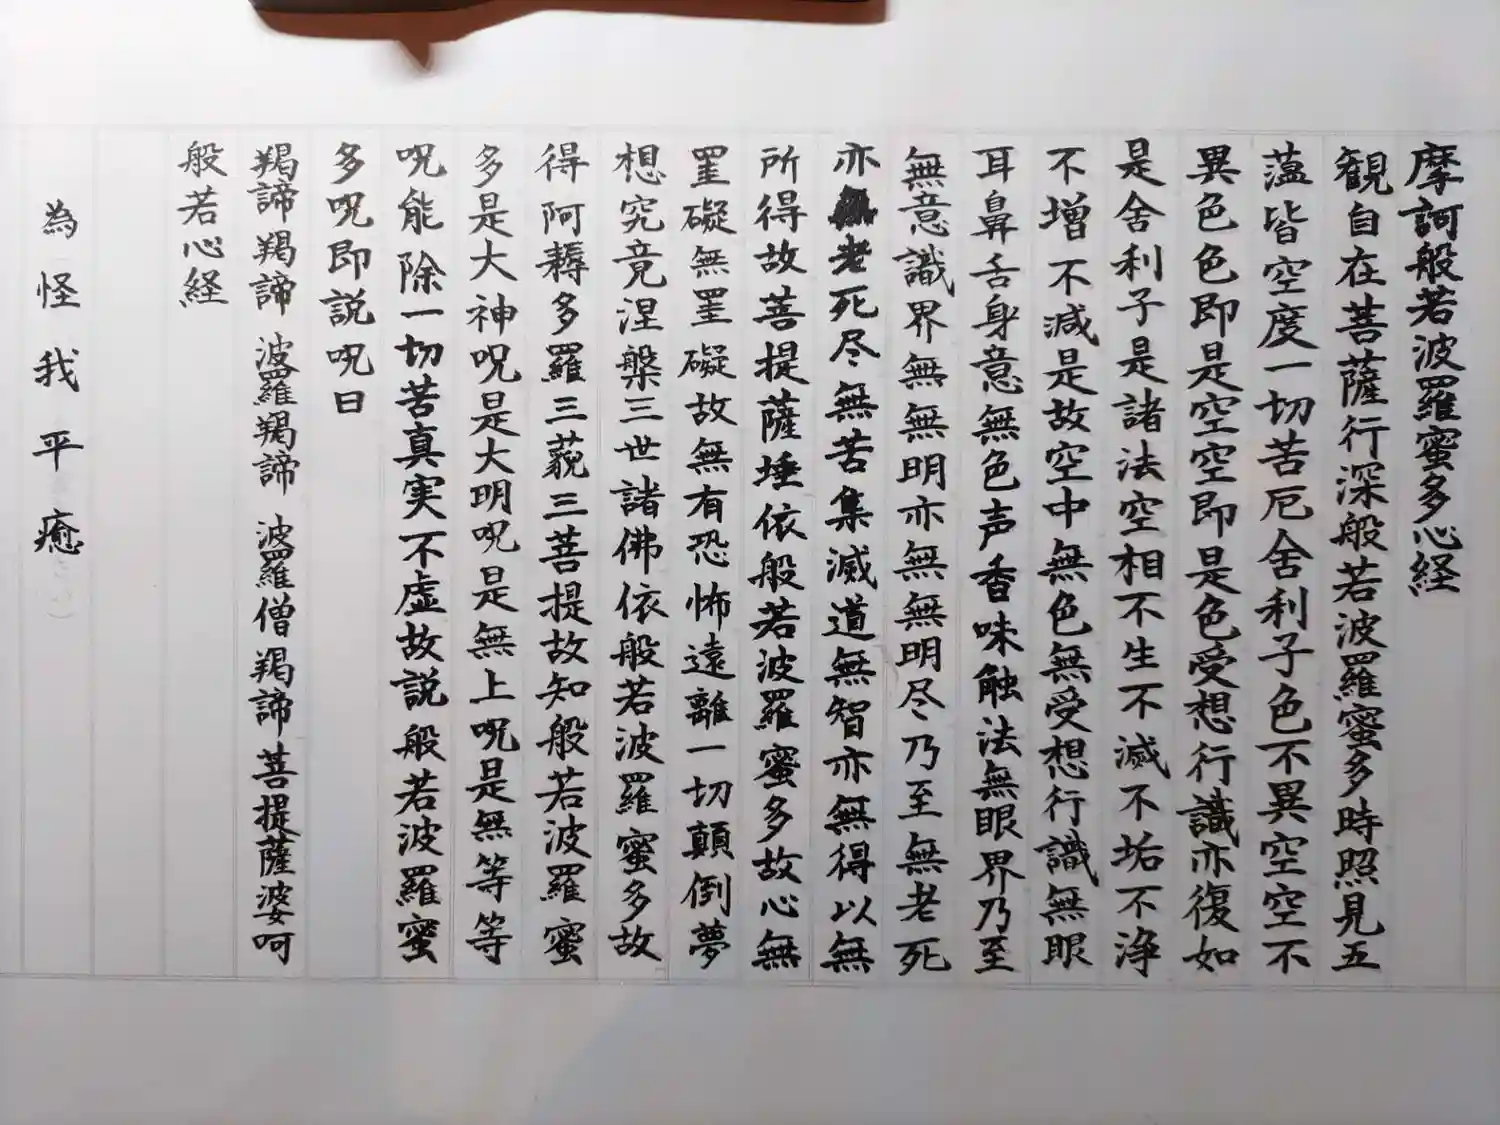 摩訶般若波羅蜜多心経
観自在菩薩行深般若波羅蜜多時照見五
薀皆空度一切苦厄舎利子色不異空空不
異色色即是空空即是色受想行識亦復如
是舎利子是諸法空相不生不滅不垢不浄
不増不減是故空中無色無受想行識無眼
耳鼻舌身意無色声香味触法無眼界乃至
無意識界無無明亦無無明尽乃至無老死
亦老死尽無苦集滅道無智亦無得以無
所得故菩提薩埵依般若波羅蜜多故心無
罣礙無罣礙故無有恐怖遠離一切顛倒夢
想究竟涅槃三世諸佛依般若波羅蜜多故
得阿耨多羅三藐三菩提故知般若波羅蜜
多是大神呪是大明呪是無上呪是無等等
呪能除一切苦真実不虚故説般若波羅蜜
多呪即説呪曰
羯諦羯諦波羅羯諦波羅僧羯諦菩提薩婆呵
般若心経
為怪我平癒